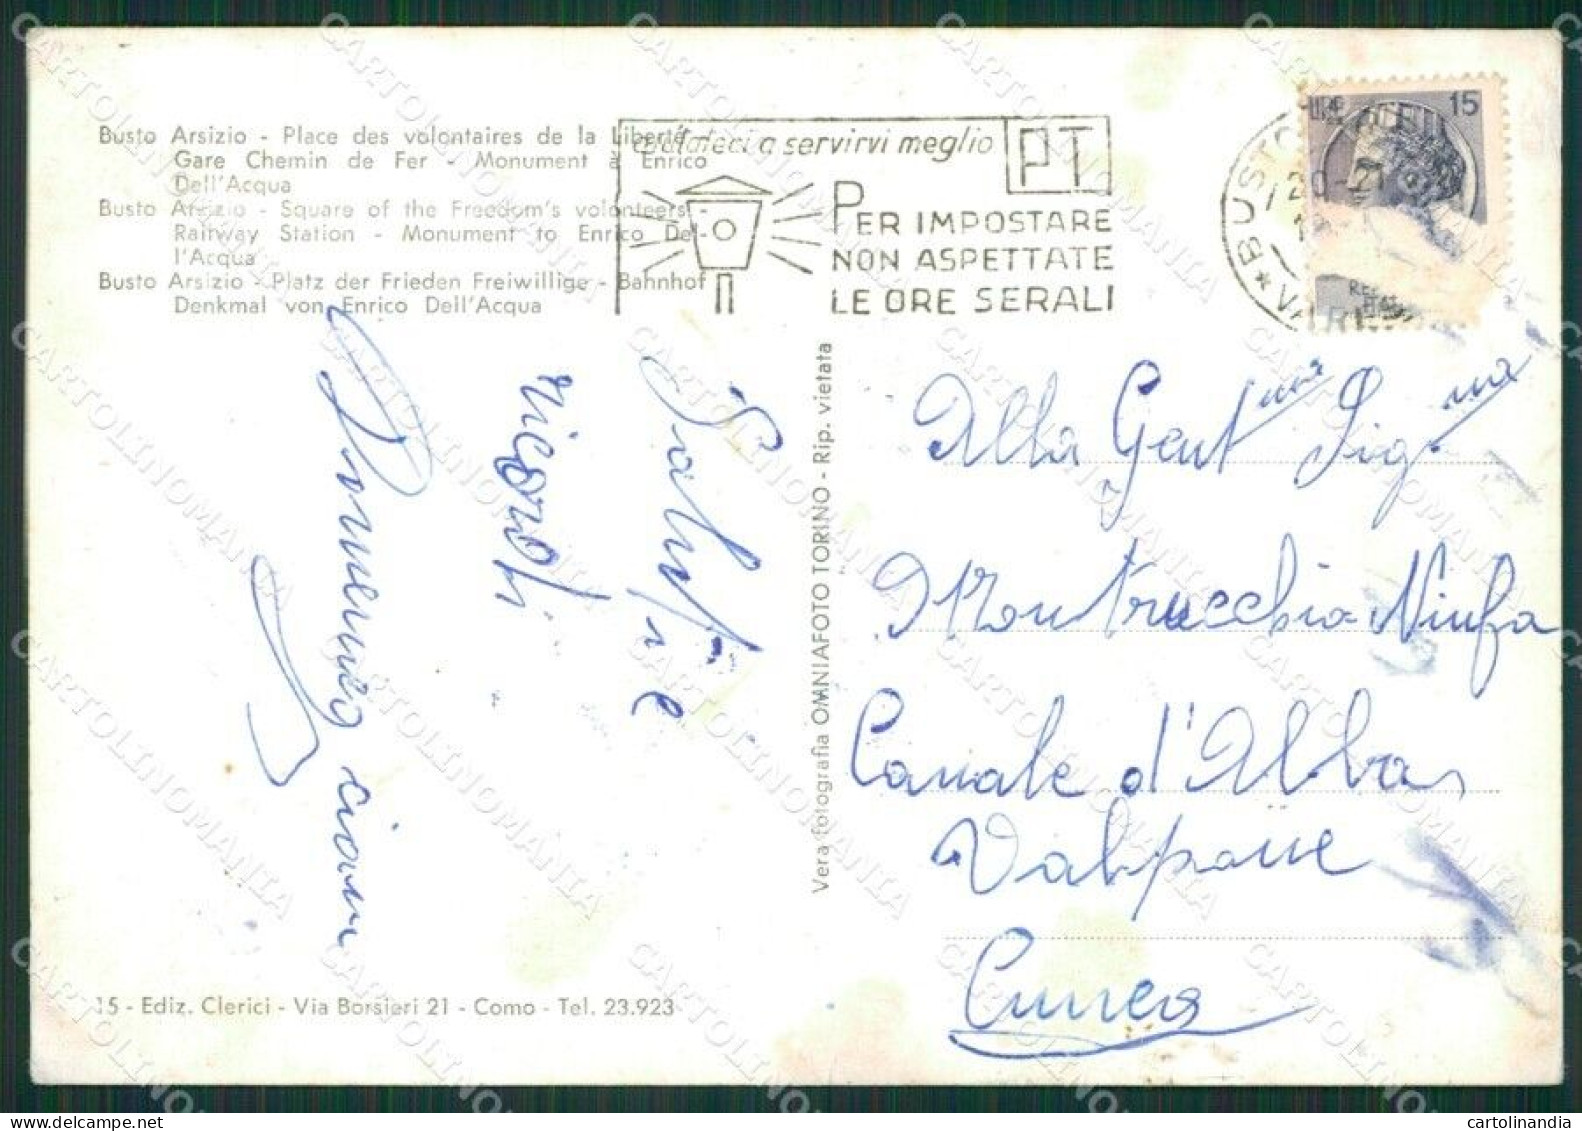 Busto Arsizio - Place des volontaires de la Liberté -
Gare Chemin de Fer - Monument à Enrico
Dell'Acqua
Busto Arsizio - Square of the Freedom's volonteers -
Railway Station - Monument to Enrico Del-
l'Acqua
Busto Arsizio - Platz der Frieden Freiwillige - Bahnhof
Denkmal von Enrico Dell'Acqua
aiutateci a servirvi meglio
PT
PER IMPOSTARE
NON ASPETTATE
LE ORE SERALI
* BUSTO
15
Salutie
ricordi
Vera fotografia OMNIAFOTO TORINO - Rip. vietata
Alla Gent ma Sig. na
Montrucchia Ninfa
Canale d'Alba
Valpone
Cuneo
15 - Ediz. Clerici - Via Borsieri 21 - Como - Tel. 23.923
CARTOLINOMANIA
cartolinandia